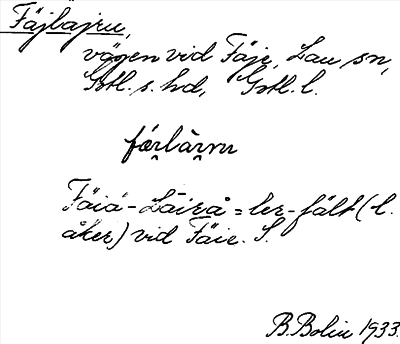 Fäjlajru,
vägen vid Fäje, Lau sn,
Gotl. s. hd, Gotl. l.
Fäiå-Läirå = ler-fält (l.
åker) vid Fäie. S.
B. Bolin 1933.